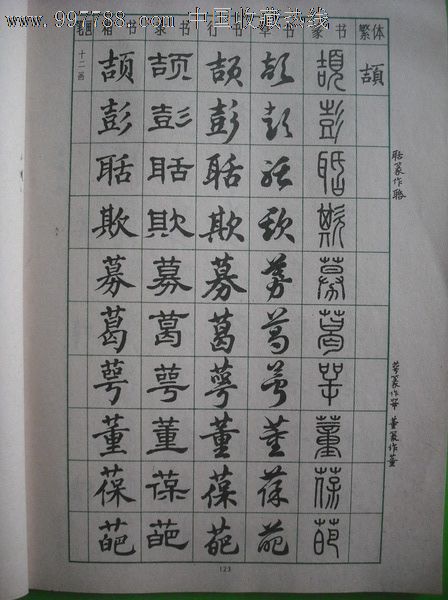 www.997788.com 中国收藏热线
笔画 楷书 隶书 行书 草书 篆书 繁体
十二画 颉 颉 颉 颉 颉 頡
彭 彭 彭 彭 彭
聒 聒 聒 聒 聒
欺 欺 欺 欺 欺
募 募 募 募 募
葛 葛 葛 葛 葛
萼 萼 萼 萼 萼
董 董 董 董 董
葆 葆 葆 葆 葆
葩 葩 葩 葩 葩
萼篆作 董篆作
123